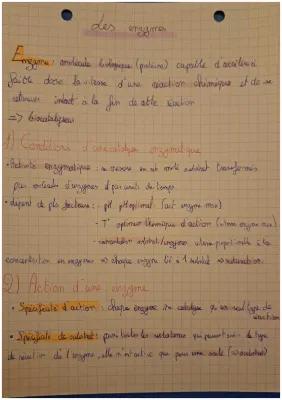 Les enzymes
Enzyme : molécule biologique (protéine) capable d'accélérer à
faible dose la vitesse d'une réaction chimique et de se
retrouver intact à la fin de cette réaction
=> biocatalyseur
1) Conditions d'une catalyse enzymatique
• Activité enzymatique : se mesure en nb molé substrat transformés
par molécule d'enzymes et par unité de temps
• dépend de plsr facteurs : - pH : pH optimal (act enzym max)
- T° optimum thermique d'action (
- concentration substrat/enzymes : vitesse proportionnelle à la
concentration en enzymes => chaque enzyme lié à 1 substrat => saturation.
2) Action d'une enzyme
• Spécificité d'action : chaque enzyme ne catalyse qu'un seul type de
réaction
• Spécificité de substrat : parmi toutes les substances qui peuvent subir le type
de réaction de l'enzyme, elle n'est active que pour une seule (=> substrat)